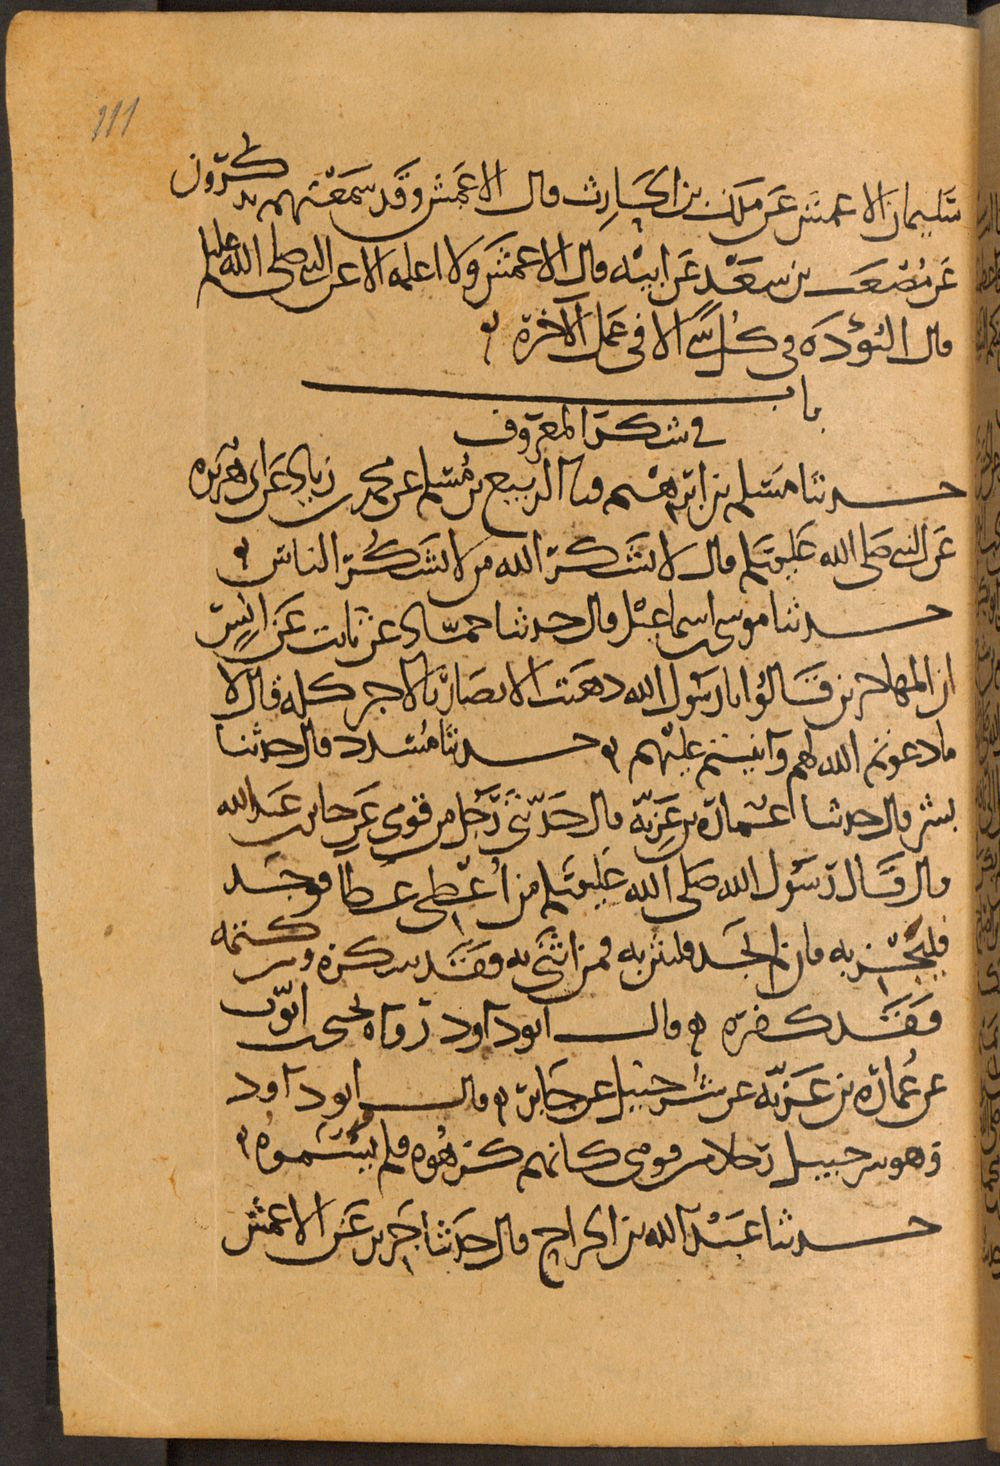 111
سليمان الاعمش عن ملك بن الحارث قال الاعمش وقد سمعتهم يذكرون
عن مصعب بن سعد عن ابيه قال الاعمش ولا اعلمه الا عن النبي صلى الله عليه
قال التؤدة في كل شي الا في عمل الآخرة
باب
في شكر المعروف
حدثنا مسلم بن ابرهيم قثا الربيع بن مسلم عن محمد بن زياد عن ابي هريرة
عن النبي صلى الله عليه وسلم قال لا يشكر الله من لا يشكر الناس
حدثنا موسى بن اسماعيل قال حدثنا حماد عن ثابت عن انس
ان المهاجرين قالوا يا رسول الله ذهبت الانصار بالاجر كله قال لا
ما دعوتم الله لهم واثنيتم عليهم حدثنا مسدد قال حدثنا
بشر قال حدثنا عمارة بن غزية قال حدثني رجل من قومي عن جابر بن عبد الله
قال قال رسول الله صلى الله عليه وسلم من اعطي عطا فوجد
فليجز به فان لم يجد فليثن به فمن اثنى به فقد شكره ومن كتمه
فقد كفره قال ابو داود رواه يحيى بن ايوب
عن عمارة بن غزية عن شرحبيل عن جابر قال ابو داود
وهو شرحبيل رجلا من قومي كانهم كرهوه فلم يسموه
حدثنا عبد الله بن الجراح قال حدثنا جرير عن الاعمش